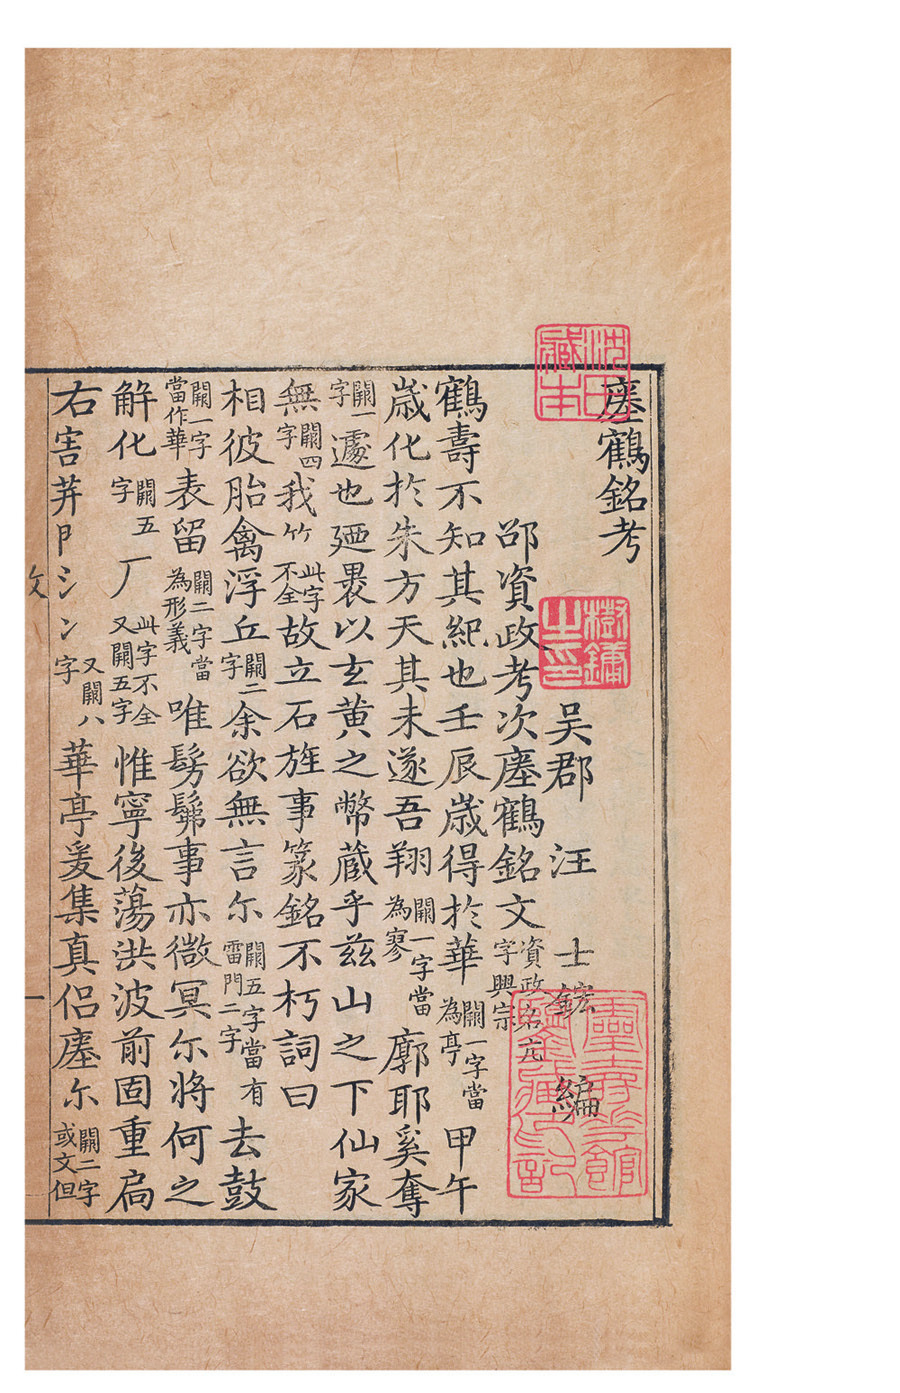 瘞鶴銘考
吴郡汪士鋐編
邵資政考次瘞鶴銘文資政名亢字興宗
鶴壽不知其紀也壬辰歳得於華闕一字當為亭甲午
歳化於朱方天其未遂吾翔闕一字當為寥廓耶奚奪
闕一字遽也廼褁以玄黄之幣蔵乎兹山之下仙家
無闕四字我竹此字不全故立石旌事篆銘不朽詞曰
相彼胎禽浮丘闕二字余欲無言尓闕五字當有雷門二字去鼓
闕一字當作華表留闕二字當為形義唯髣髴事亦微冥尓將何之
解化闕五字厂此字不全又闕五字惟寧後蕩洪波前固重扃
右害荓又闕八字華亭爰集真侣瘞尓闕二字或文但
攵
一
沈氏藏本
樹鏞之印
靈壽花館鑒藏印記